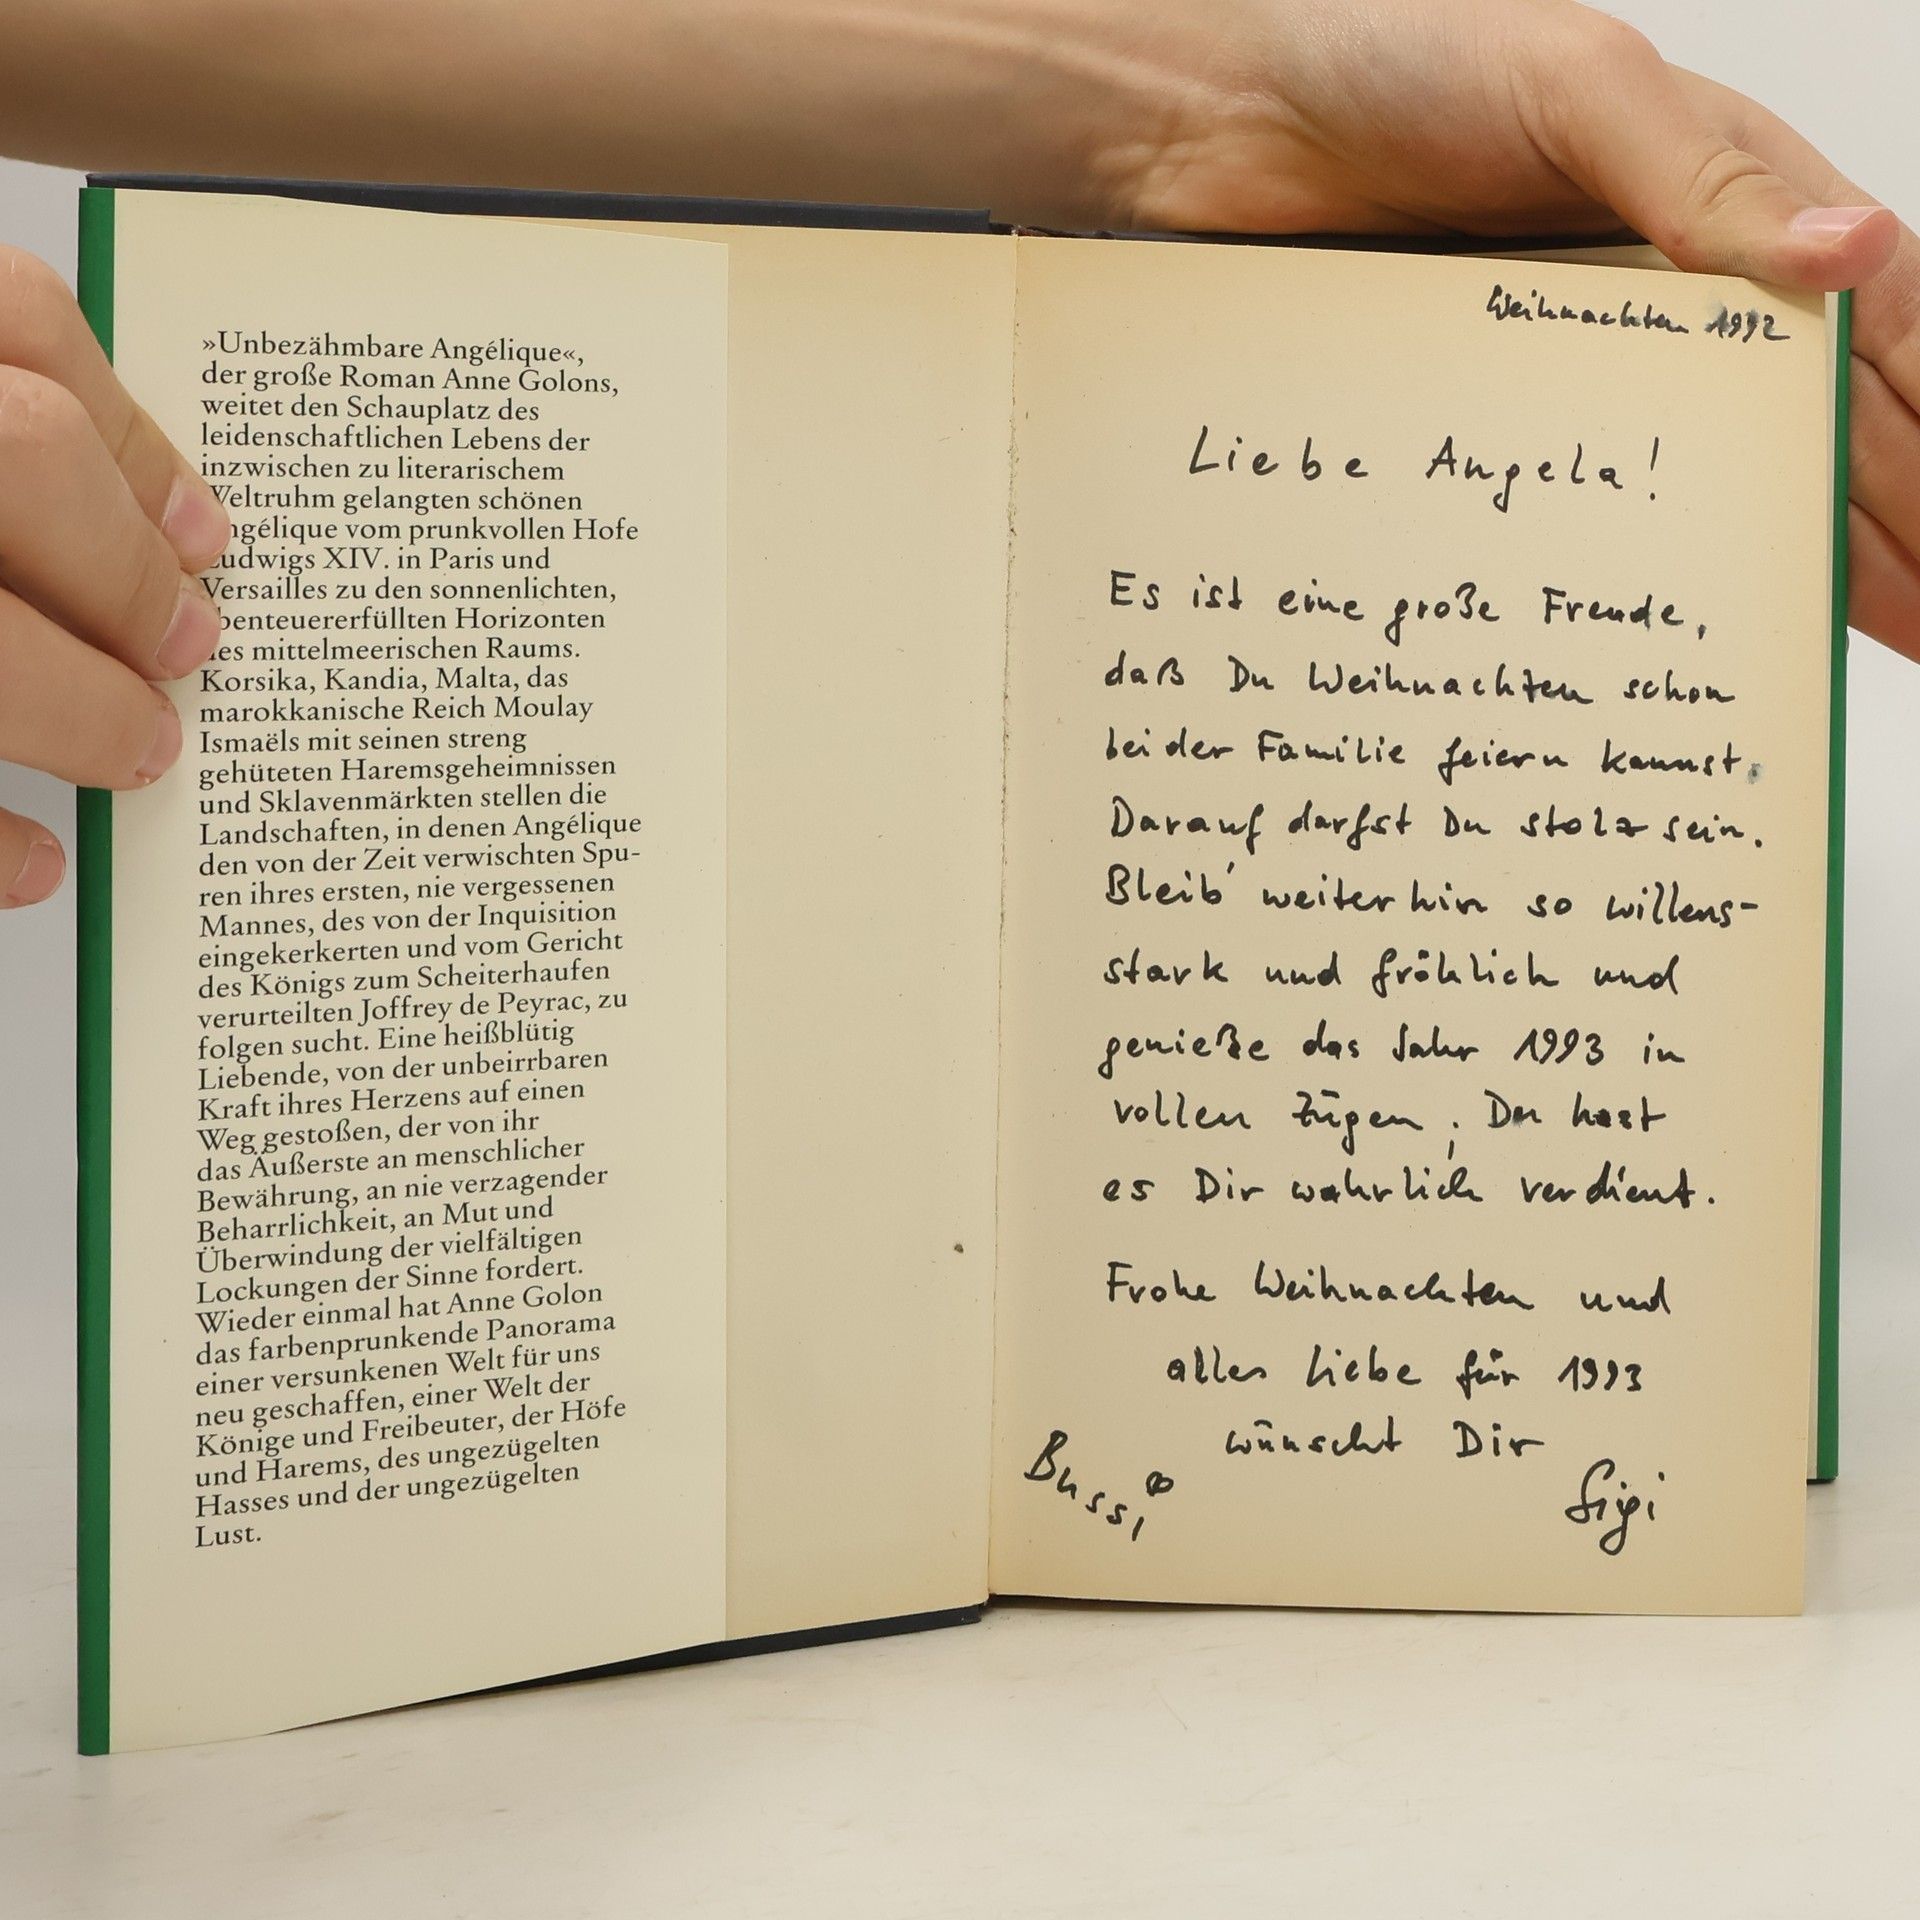 »Unbezähmbare Angélique«,
der große Roman Anne Golons,
weitet den Schauplatz des
leidenschaftlichen Lebens der
inzwischen zu literarischem
Weltruhm gelangten schönen
ngélique vom prunkvollen Hofe
udwigs XIV. in Paris und
Versailles zu den sonnenlichten,
benteuererfüllten Horizonten
des mittelmeerischen Raums.
Korsika, Kandia, Malta, das
marokkanische Reich Moulay
Ismaëls mit seinen streng
gehüteten Haremsgeheimnissen
und Sklavenmärkten stellen die
Landschaften, in denen Angélique
den von der Zeit verwischten Spu-
ren ihres ersten, nie vergessenen
Mannes, des von der Inquisition
eingekerkerten und vom Gericht
des Königs zum Scheiterhaufen
verurteilten Joffrey de Peyrac, zu
folgen sucht. Eine heißblütig
Liebende, von der unbeirrbaren
Kraft ihres Herzens auf einen
Weg gestoßen, der von ihr
das Äußerste an menschlicher
Bewährung, an nie verzagender
Beharrlichkeit, an Mut und
Überwindung der vielfältigen
Lockungen der Sinne fordert.
Wieder einmal hat Anne Golon
das farbenprunkende Panorama
einer versunkenen Welt für uns
neu geschaffen, einer Welt der
Könige und Freibeuter, der Höfe
und Harems, des ungezügelten
Hasses und der ungezügelten
Lust.
Weihnachten 1992
Liebe Angela!
Es ist eine große Freude,
daß Du Weihnachten schon
bei der Familie feiern kannst.
Darauf darfst Du stolz sein.
Bleib' weiterhin so willens-
stark und fröhlich und
genieße das Jahr 1993 in
vollen Zügen; Du hast
es Dir wahrlich verdient.
Frohe Weihnachten und
alles Liebe für 1993
wünscht Dir
Bussi
Sigi